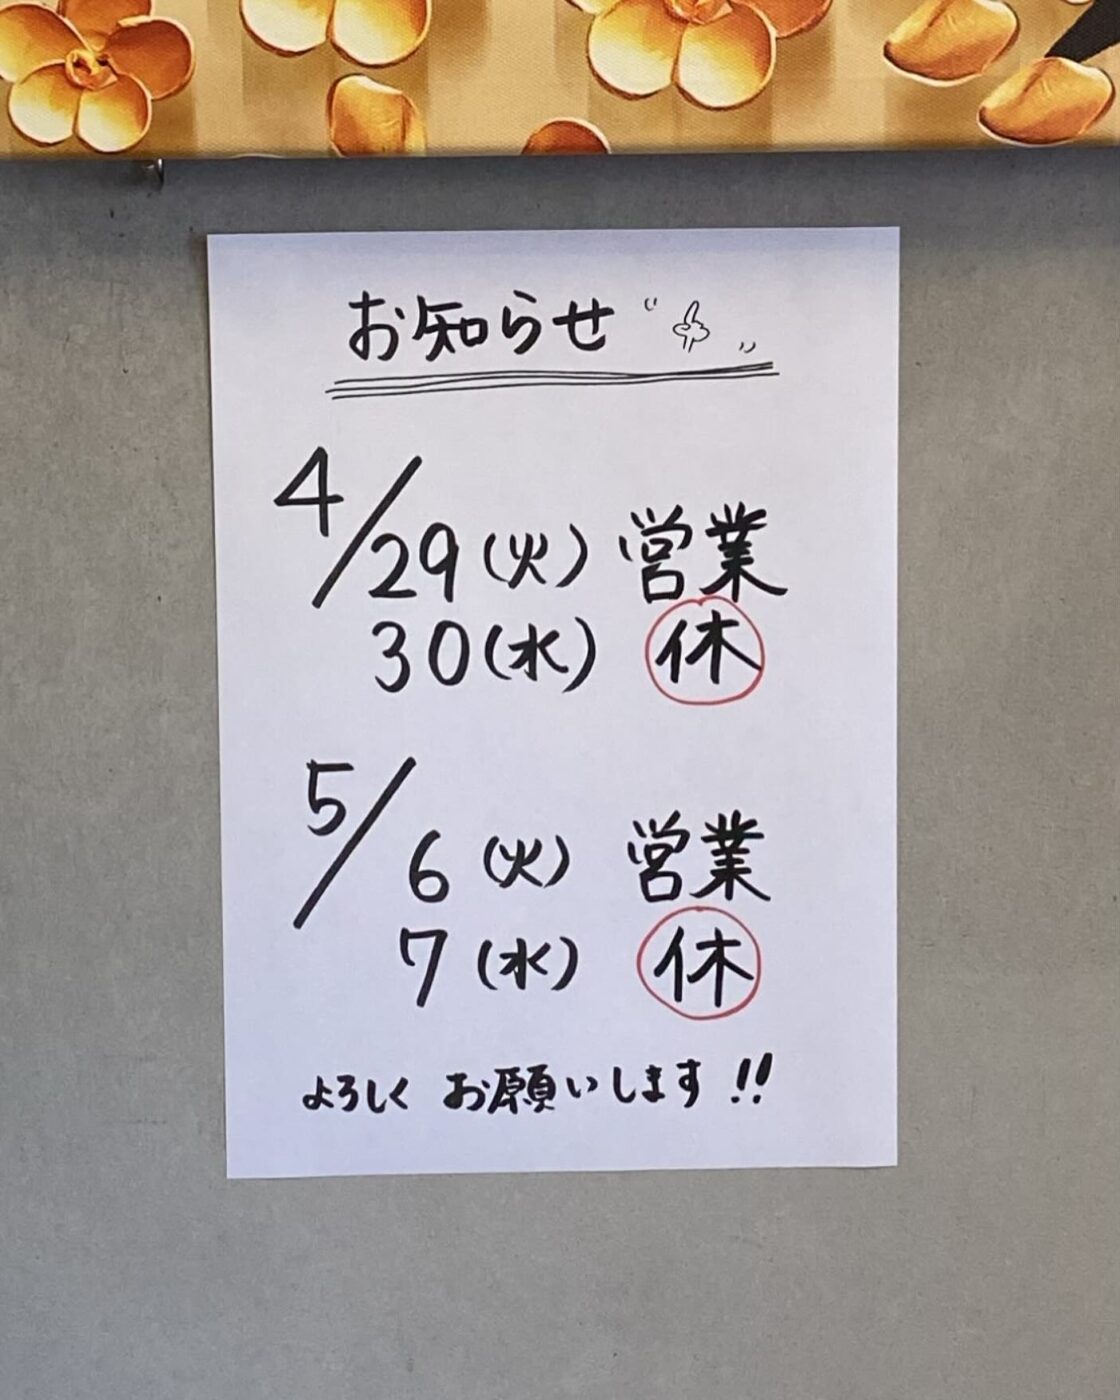 お知らせ
4/29(火) 営業
30(水) 休
5/6(火) 営業
7(水) 休
よろしく お願いします!!